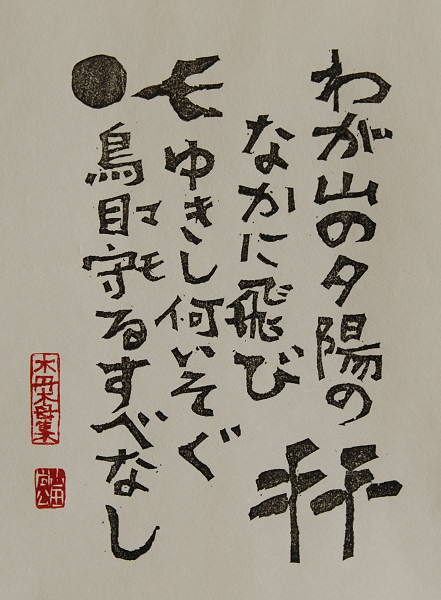 わが山の夕陽の
なかに飛び
ゆきし何いそぐ
鳥目守るすべなし
マモ